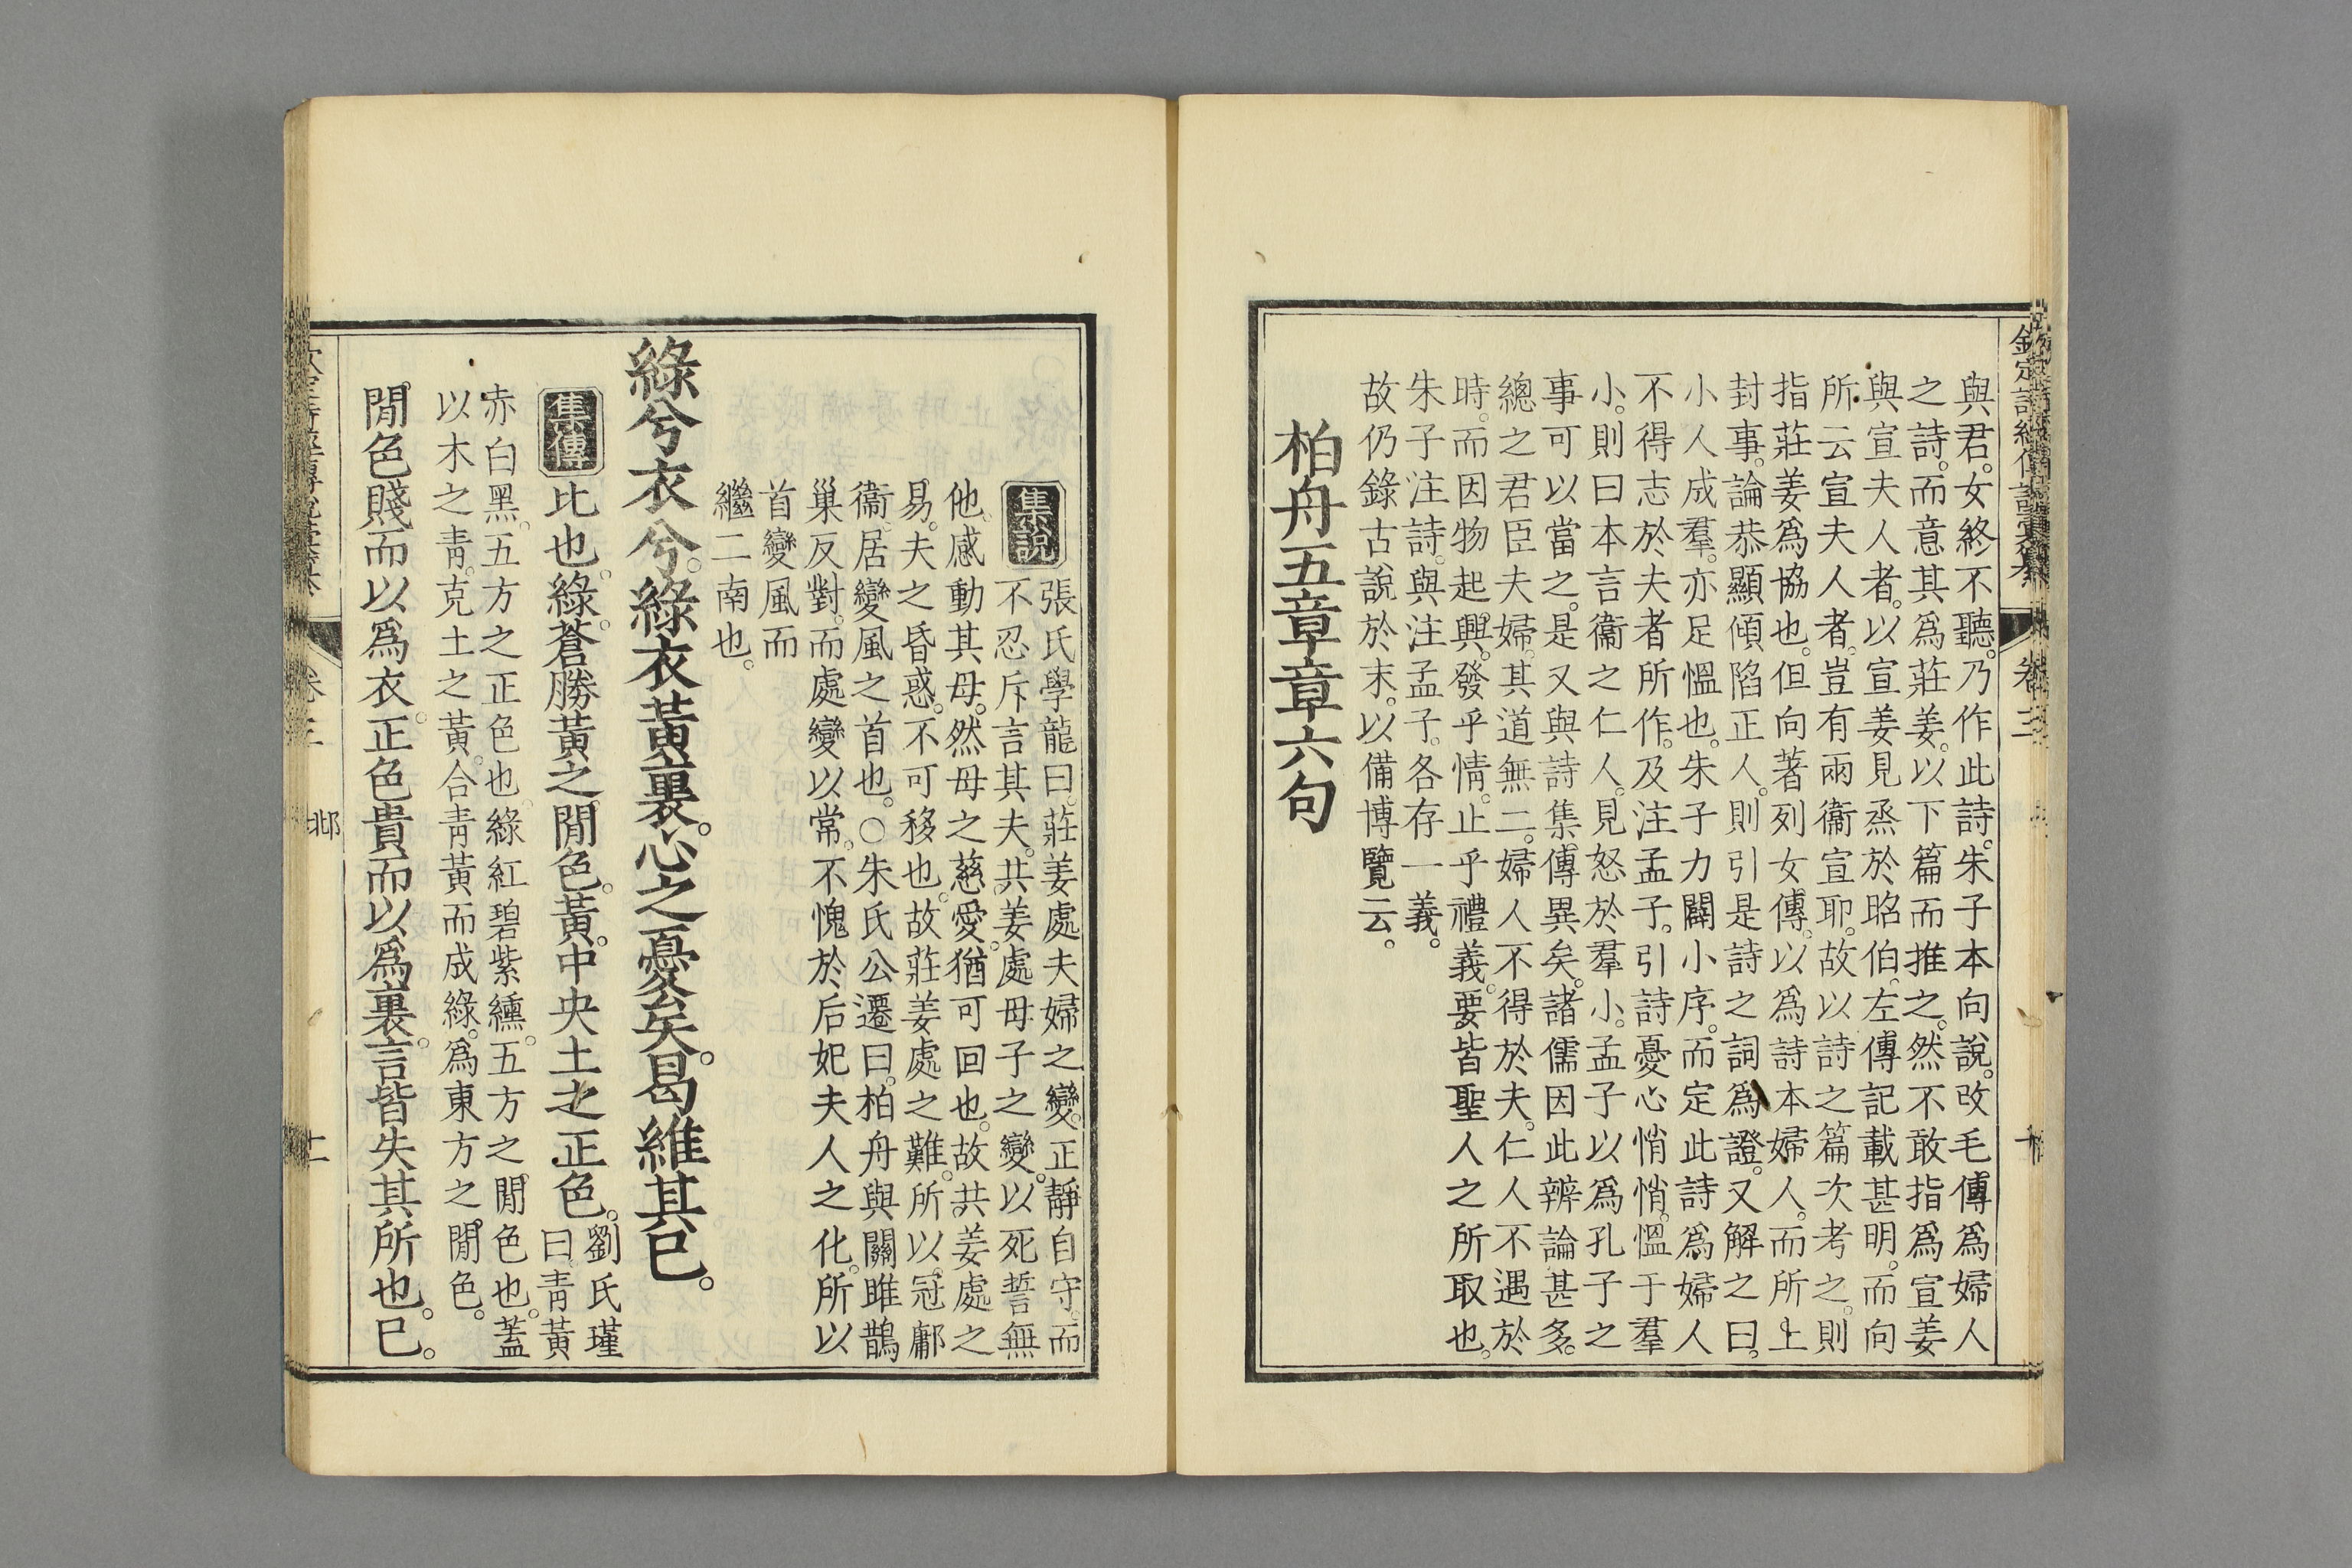 與君。女終不聽。乃作此詩。朱子本向說。改毛傳爲婦人
之詩。而意其爲莊姜。以下篇而推之。然不敢指爲宣姜
與宣夫人者。以宣姜見烝於昭伯。左傳記載甚明。而向
所云宣夫人者。豈有兩衞宣耶。故以詩之篇次考之。則
指莊姜爲協也。但向著列女傳。以爲詩本婦人。而所上
封事。論恭顯傾陷正人。則引是詩之詞爲證。又解之曰。
小人成羣。亦足慍也。朱子力闢小序。而定此詩爲婦人
不得志於夫者所作。及注孟子。引詩憂心悄悄。慍于羣
小。則曰本言衞之仁人。見怒於羣小。孟子以爲孔子之
事可以當之。是又與詩集傳異矣。諸儒因此辨論甚多。
總之君臣夫婦。其道無二。婦人不得於夫。仁人不遇於
時。而因物起興。發乎情。止乎禮義。要皆聖人之所取也。
朱子注詩。與注孟子。各存一義。
故仍錄古說於末。以備博覽云。
柏舟五章章六句
集說 張氏學龍曰。莊姜處夫婦之變。正靜自守。而
不忍斥言其夫。共姜處母子之變。以死誓無
他。感動其母。然母之慈愛。猶可回也。故共姜處之
易。夫之昏惑。不可移也。故莊姜處之難。所以冠鄘
衞。居變風之首也。○朱氏公遷曰。柏舟與關雎鵲
巢反對。而處變以常。不愧於后妃夫人之化。所以
首變風而
繼二南也。
綠兮衣兮。綠衣黃裏。心之憂矣。曷維其已。
集傳 比也。綠。蒼勝黃之閒色。黃。中央土之正色。劉氏瑾
曰。青黃
赤白黑。五方之正色也。綠紅碧紫纁。五方之閒色也。蓋
以木之青。克土之黃。合青黃而成綠。爲東方之閒色。
閒色賤而以爲衣。正色貴而以爲裏。言皆失其所也。已。
卷三
邶